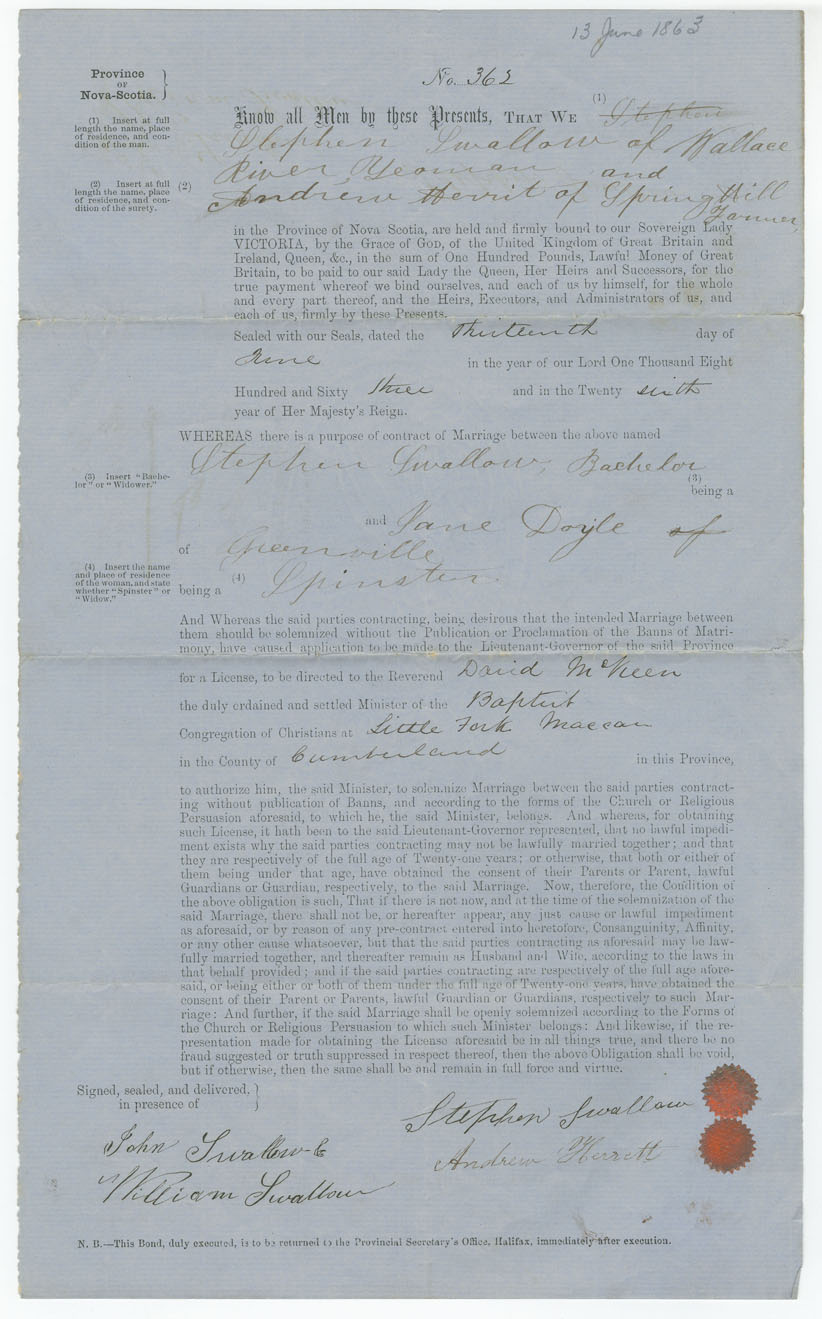 13 June 1863
Province
OF
Nova-Scotia.
No. 362
(1) Insert at full
length the name, place
of residence, and con-
dition of the man.
Know all Men by these Presents, THAT WE (1) Stephen
Stephen Swallow of Wallace
River Yeoman and
(2) Insert at full
length the name, place
of residence, and con-
dition of the surety.
(2) Andrew Herrit of Spring Hill
Farmer,
in the Province of Nova Scotia, are held and firmly bound to our Sovereign Lady
VICTORIA, by the Grace of GOD, of the United Kingdom of Great Britain and
Ireland, Queen, &c., in the sum of One Hundred Pounds, Lawful Money of Great
Britain, to be paid to our said Lady the Queen, Her Heirs and Successors, for the
true payment whereof we bind ourselves, and each of us by himself, for the whole
and every part thereof, and the Heirs, Executors, and Administrators of us, and
each of us, firmly by these Presents.
Sealed with our Seals, dated the Thirteenth day of
June in the year of our Lord One Thousand Eight
Hundred and Sixty three and in the Twenty sixth
year of Her Majesty's Reign.
WHEREAS there is a purpose of contract of Marriage between the above named
Stephen Swallow, Bachelor
(3) Insert "Bache-
lor" or "Widower."
(3)
being a
and Jane Doyle of
of Greenville
(4) Insert the name
and place of residence
of the woman, and state
whether "Spinster" or
"Widow."
being a (4) Spinster
And Whereas the said parties contracting, being desirous that the intended Marriage between
them should be solemnized without the Publication or Proclamation of the Banns of Matri-
mony, have caused application to be made to the Lieutenant-Governor of the said Province
for a License, to be directed to the Reverend David McKeen
the duly ordained and settled Minister of the Baptist
Congregation of Christians at Little Fork Maccan
in the County of Cumberland in this Province,
to authorize him, the said Minister, to solemnize Marriage between the said parties contract-
ing without publication of Banns, and according to the forms of the Church or Religious
Persuasion aforesaid, to which he, the said Minister, belongs. And whereas, for obtaining
such License, it hath been to the said Lieutenant-Governor represented, that no lawful impedi-
ment exists why the said parties contracting may not be lawfully married together; and that
they are respectively of the full age of Twenty-one years; or otherwise, that both or either of
them being under that age, have obtained the consent of their Parents or Parent, lawful
Guardians or Guardian, respectively, to the said Marriage. Now, therefore, the Condition of
the above obligation is such, That if there is not now, and at the time of the solemnization of the
said Marriage, there shall not be, or hereafter appear, any just cause or lawful impediment
as aforesaid, or by reason of any pre-contract entered into heretofore, Consanguinity, Affinity,
or any other cause whatsoever, but that the said parties contracting as aforesaid may be law-
fully married together, and thereafter remain as Husband and Wife, according to the laws in
that behalf provided; and if the said parties contracting are respectively of the full age afore-
said, or being either or both of them under the full age of Twenty-one years, have obtained the
consent of their Parent or Parents, lawful Guardian or Guardians, respectively to such Mar-
riage: And further, if the said Marriage shall be openly solemnized according to the Forms of
the Church or Religious Persuasion to which such Minister belongs: And likewise, if the re-
presentation made for obtaining the License aforesaid be in all things true, and there be no
fraud suggested or truth suppressed in respect thereof, then the above Obligation shall be void,
but if otherwise, then the same shall be and remain in full force and virtue.
Signed, sealed, and delivered,
in presence of
Stephen Swallow
John Swallow
Andrew Herrett
William Swallow
N. B.—This Bond, duly executed, is to be returned to the Provincial Secretary's Office, Halifax, immediately after execution.